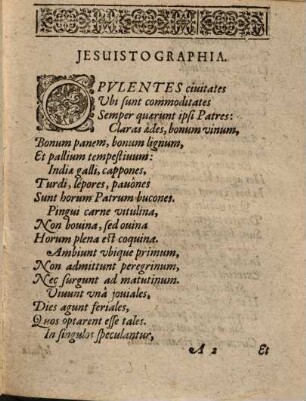 JESUISTOGRAPHIA.
OPVLENTES ciuitates
Vbi sunt commoditates
Semper quærunt ipsi Patres:
Claras ædes, bonum vinum,
Bonum panem, bonum lignum,
Et pallium tempestiuum:
Indiæ galli, cappones,
Turdi, lepores, pauones
Sunt horum Patrum bucones.
Pingui carne vitulina,
Non bouina, sed ouina
Horum plena est coquina.
Ambiunt vbique primum,
Non admittunt peregrinum,
Nec surgunt ad matutinum.
Viuunt vnà jouiales,
Dies agunt feriales,
Quos optarent esse tales.
In singulos speculantur,
A 2 Et